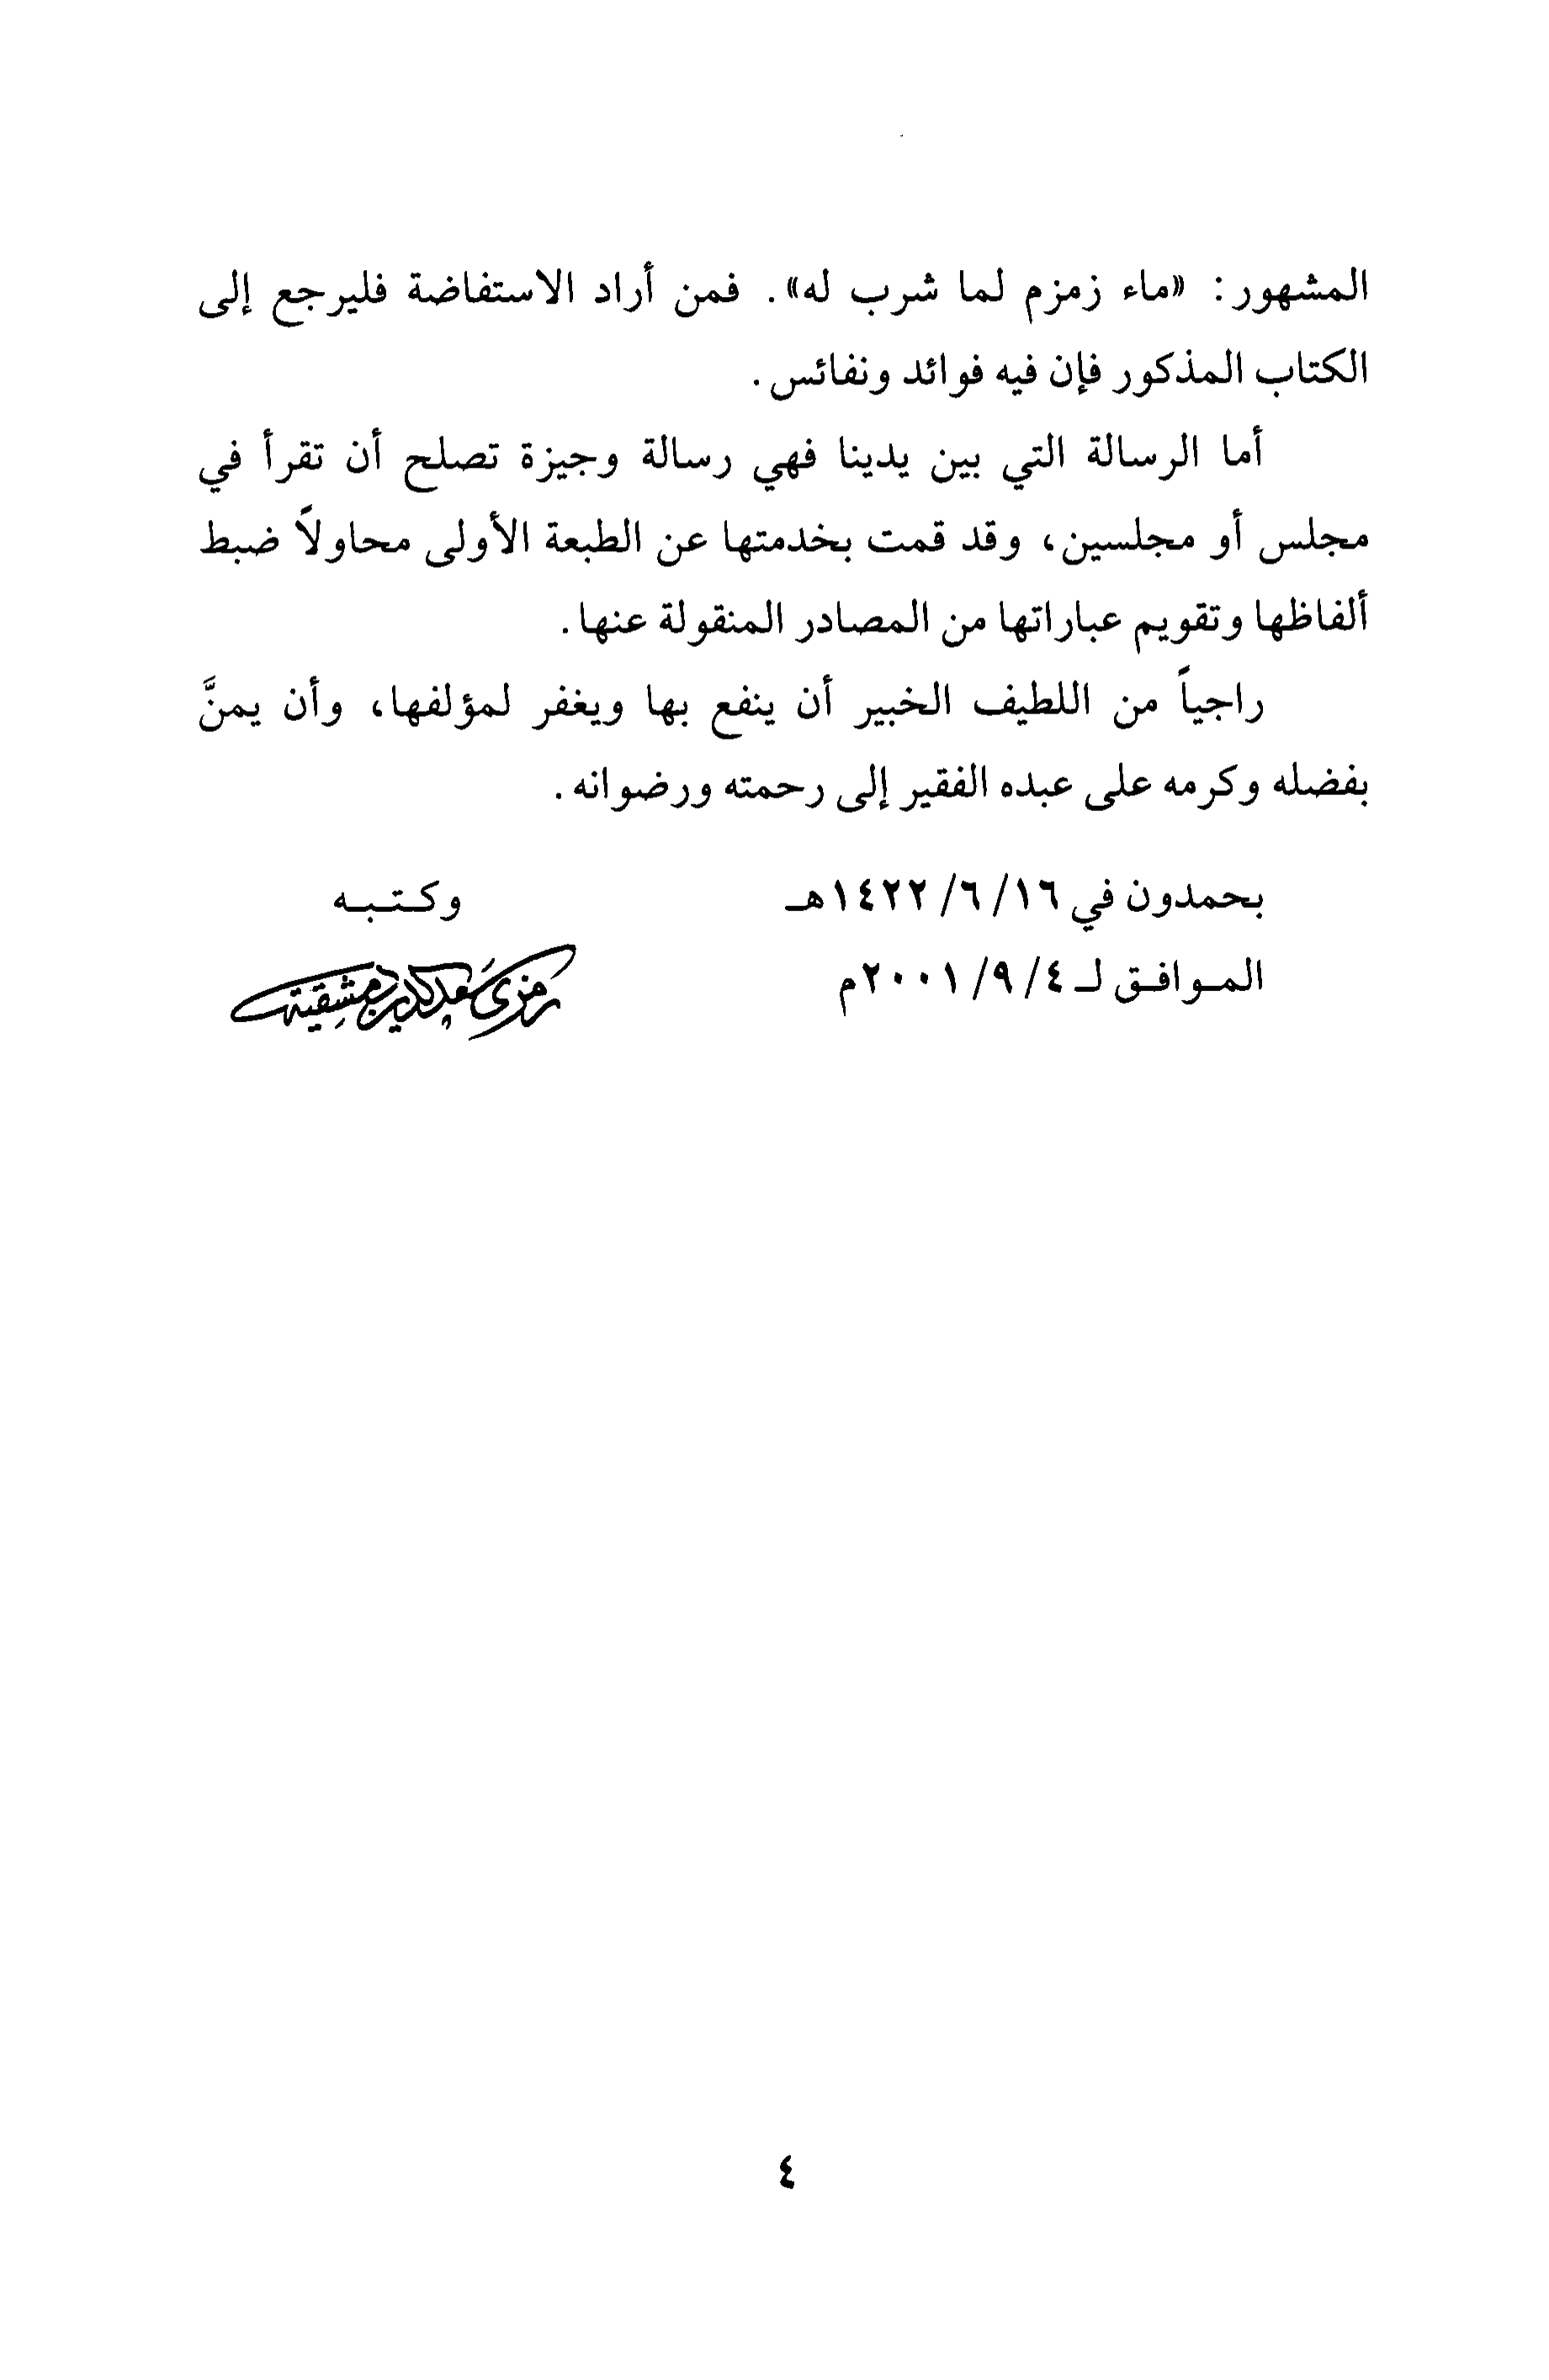 المشهور: «ماء زمزم لما شرب له». فمن أراد الاستفاضة فليرجع إلى
الكتاب المذكور فإن فيه فوائد ونفائس.
أما الرسالة التي بين يدينا فهي رسالة وجيزة تصلح أن تقرأ في
مجلس أو مجلسين، وقد قمت بخدمتها عن الطبعة الأولى محاولاً ضبط
ألفاظها وتقويم عباراتها من المصادر المنقولة عنها.
راجياً من اللطيف الخبير أن ينفع بها ويغفر لمؤلفها، وأن يمنَّ
بفضله وكرمه على عبده الفقير إلى رحمته ورضوانه.
بحمدون في ١٦/ ٦/ ١٤٢٢هـ
الموافق لـ ٤/ ٩/ ٢٠٠١م
وكتبه
رمزي سعد الدين دمشقية
٤